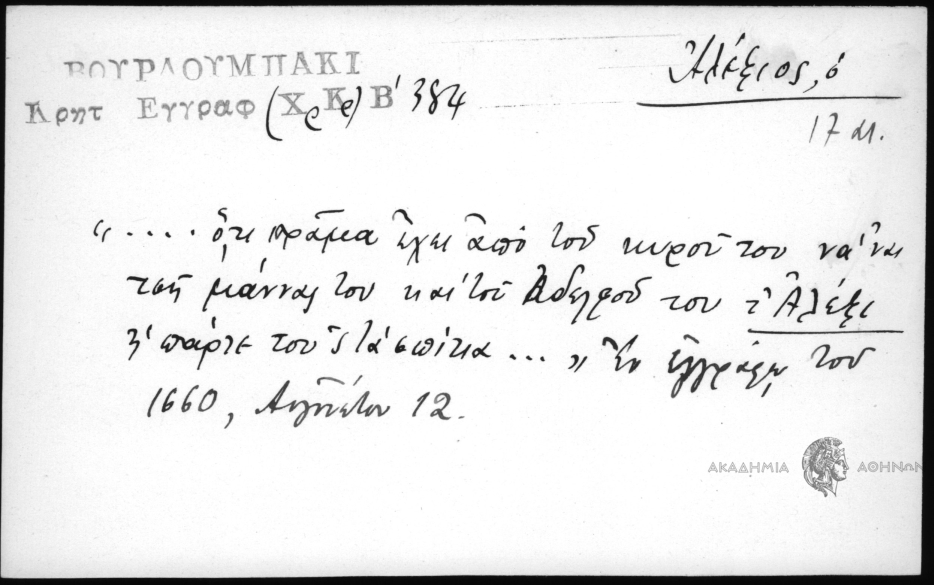 ΒΟΥΡΔΟΥΜΠΑΚΙ
Κρητ Εγγραφ (Χρ Κρ) Β' 384
Ἀλέξιος, ὁ
17 αι.
".... ὅτι πρᾶμα ἔχει ἀπὸ τοῦ κυροῦ του νά'ναι
τσῆ μάννας του καὶ τοῦ Ἀδελφοῦ του τ' Ἀλέξι
ἡ πάρτε τους τὰ σπίτια ..." Ἐν ἐγγράφῳ τοῦ
1660, Αὐγούστου 12.
ΑΚΑΔΗΜΙΑ ΑΘΗΝΩΝ